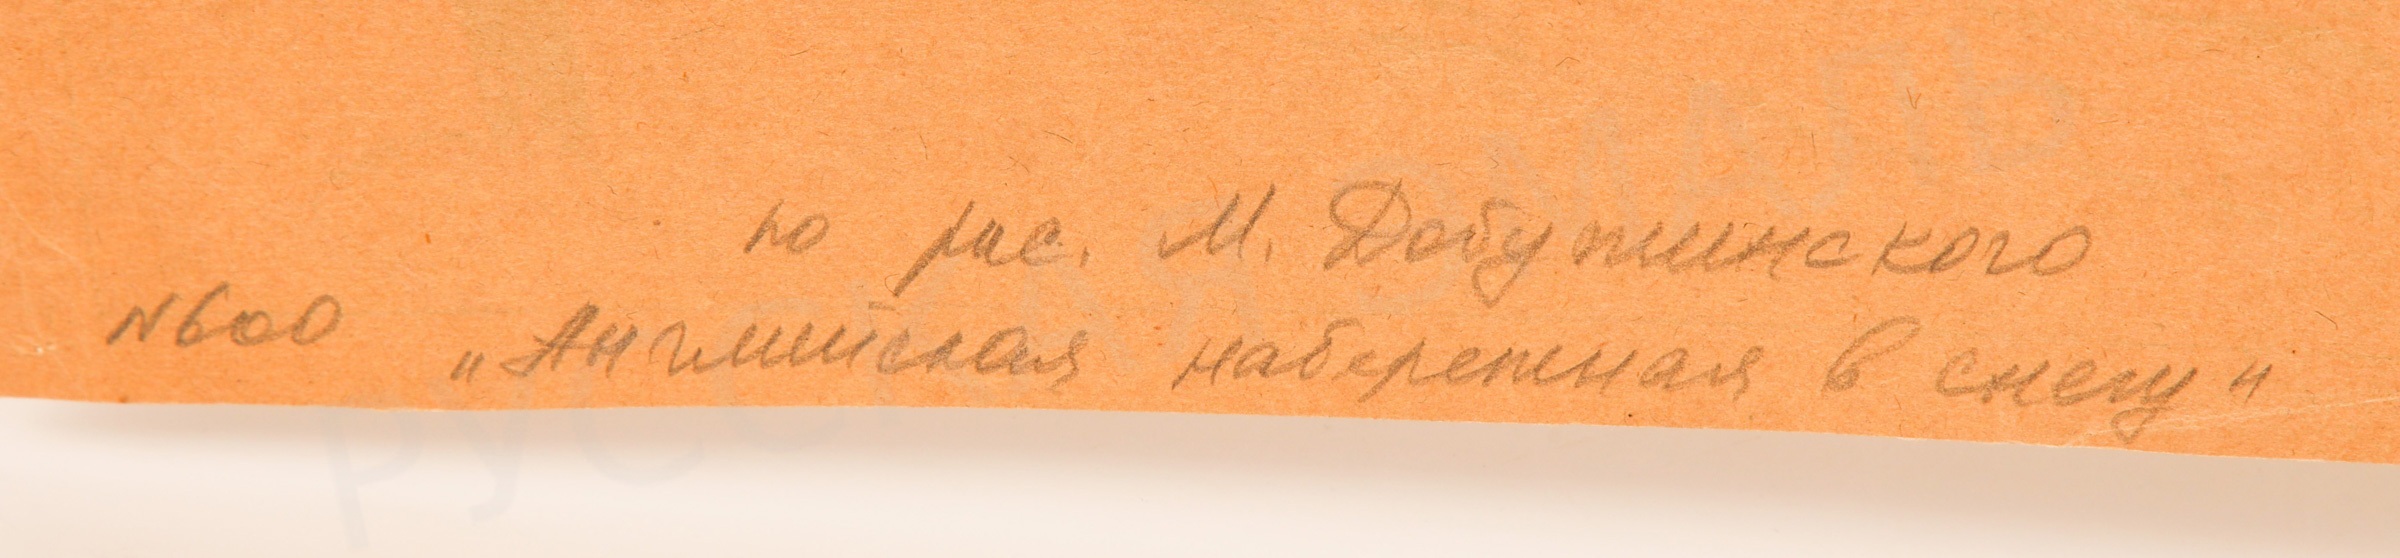 по рис. М. Добужинского
N600 „Английская набережная в снегу"